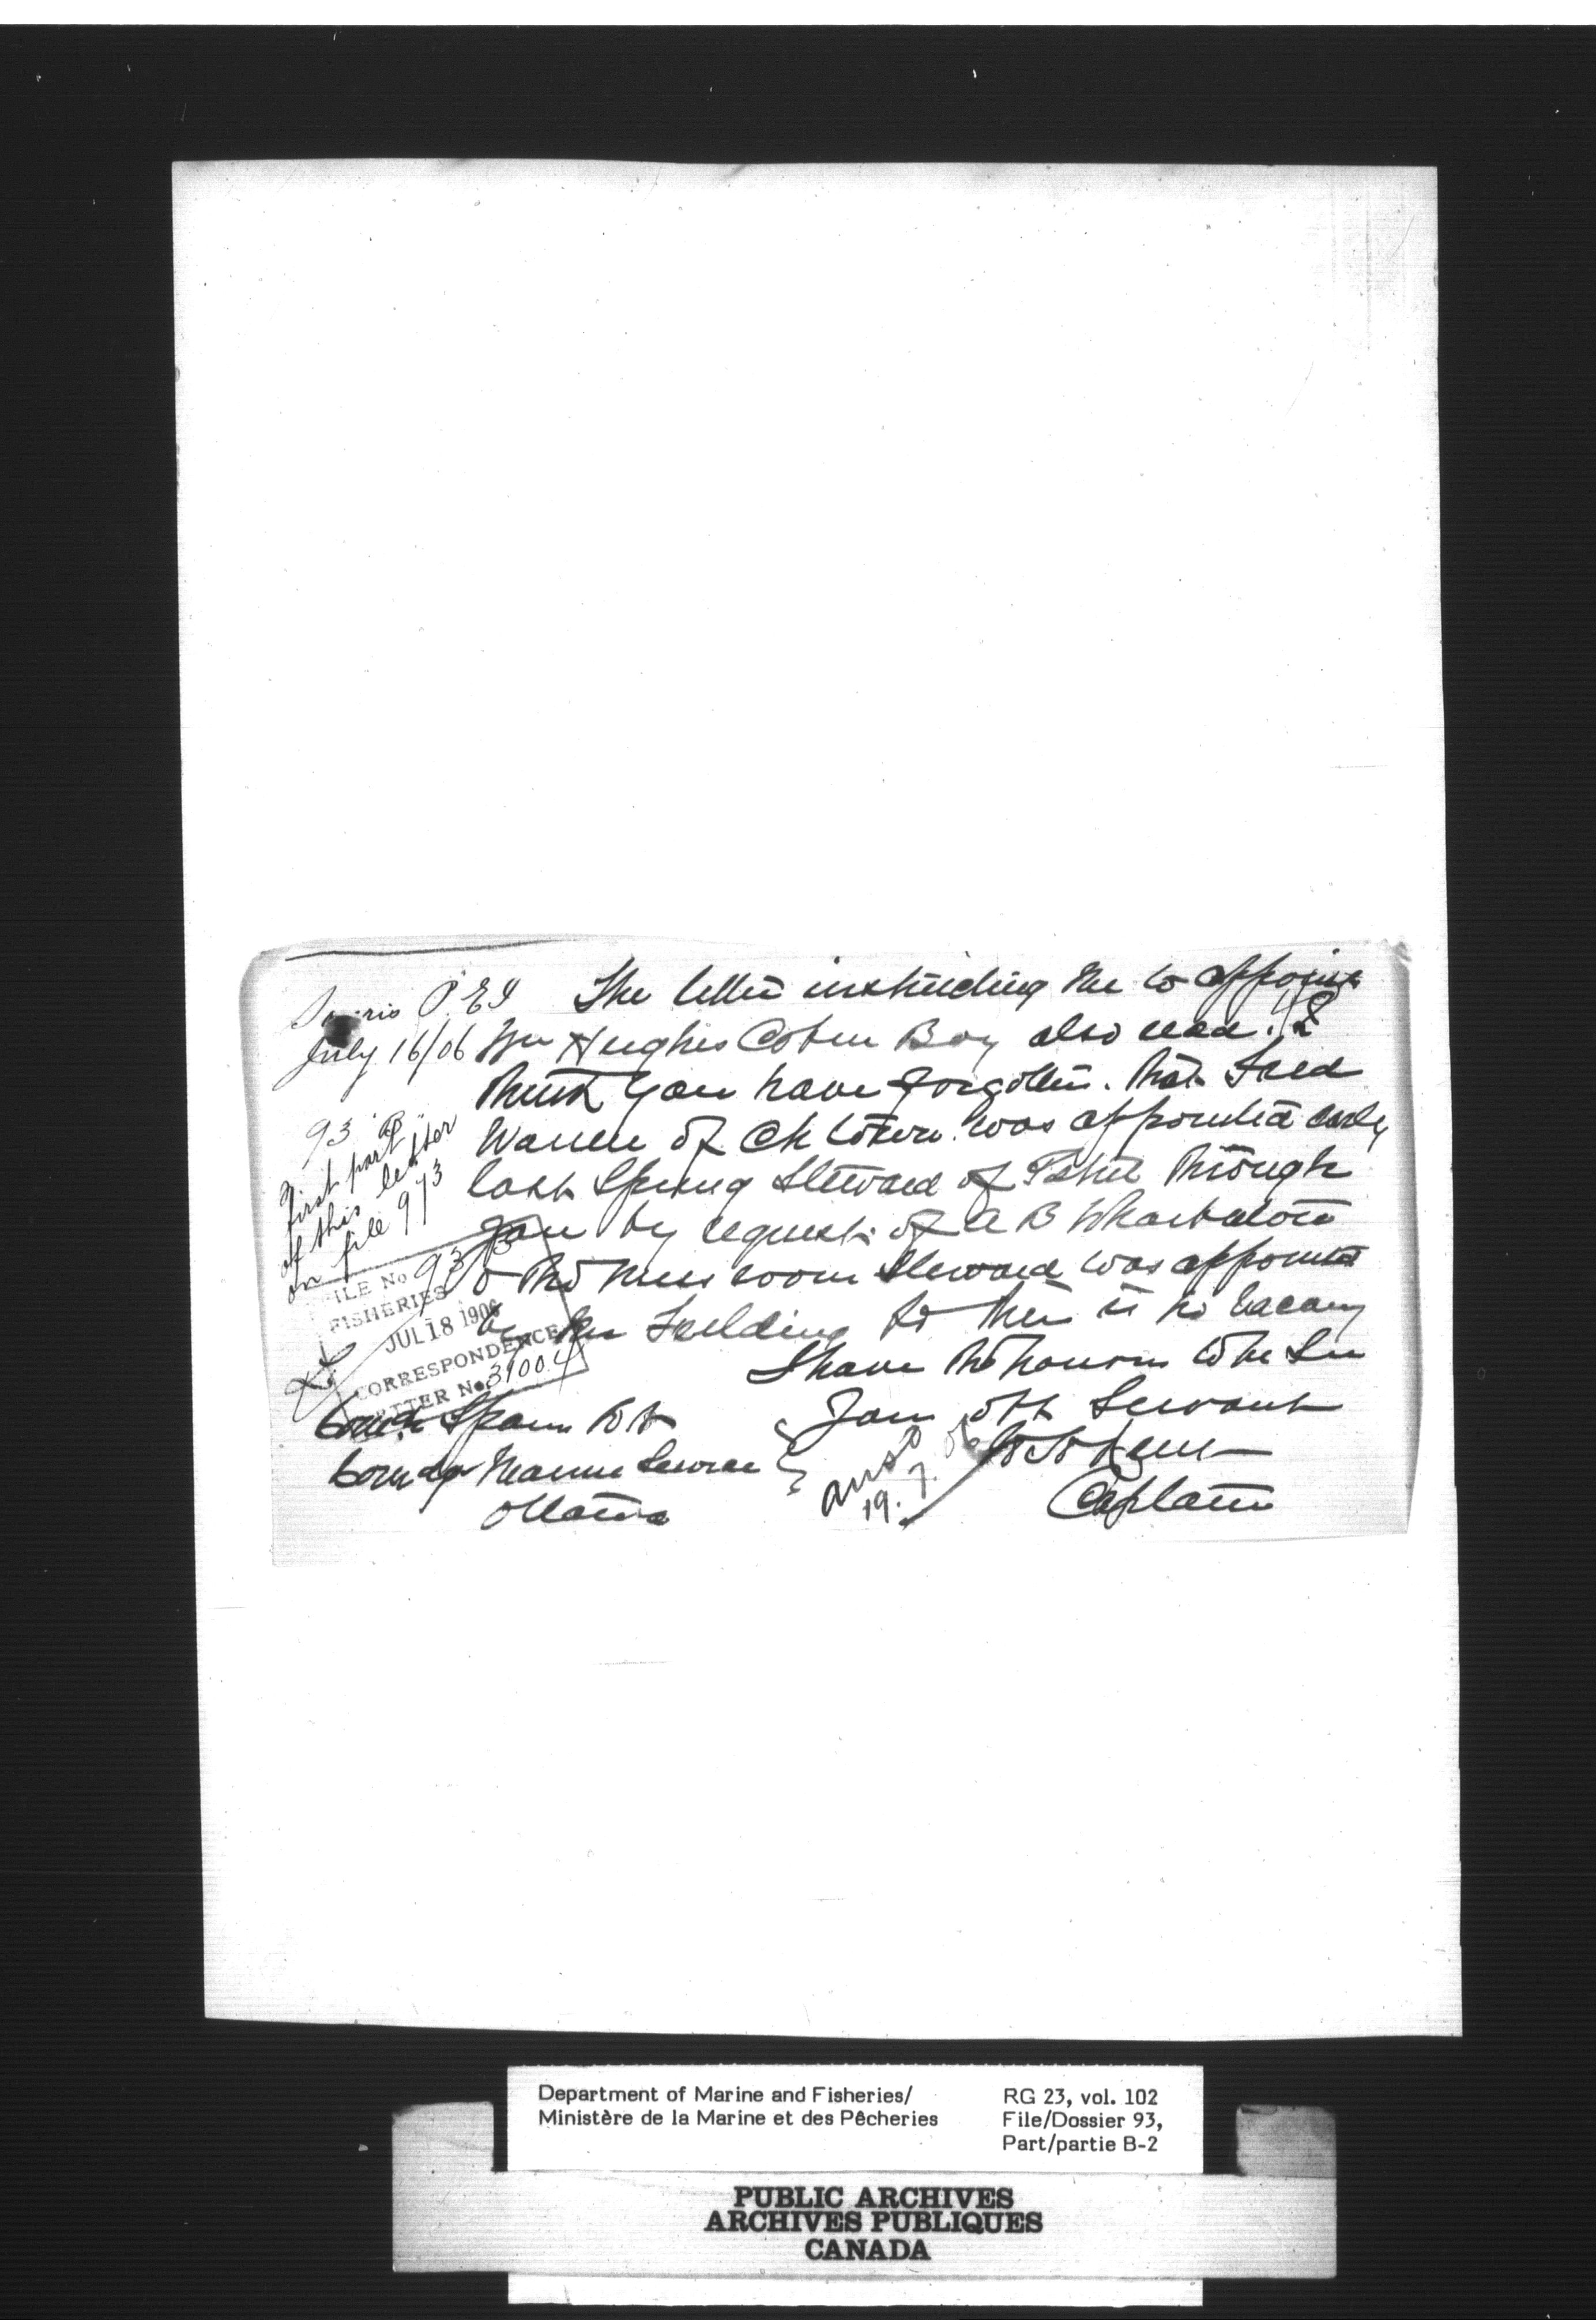 Souris P.E.I
July 16/06
93 "B"
First part
of this letter
on file 973
The letter instructing me to appoint
Wm Hughes Cabin Boy also read. I
think you have forgotten. that Fred
Warren of Ch town was appointed early
last Spring Steward of Petrel through
you by request of A B Warburton
& the mess room Steward was appointed
by Mr Fielding so there is no vacancy
I have the honour to be Sir
Your obt Servant
Captain
FILE No 93 B
FISHERIES
JUL 18 1906
CORRESPONDENCE
LETTER No. 31004
48
Comdr Spain
Comdg Marine Service
Ottawa
ansd
19.7.06
Department of Marine and Fisheries/
Ministère de la Marine et des Pêcheries
RG 23, vol. 102
File/Dossier 93,
Part/partie B-2
PUBLIC ARCHIVES
ARCHIVES PUBLIQUES
CANADA